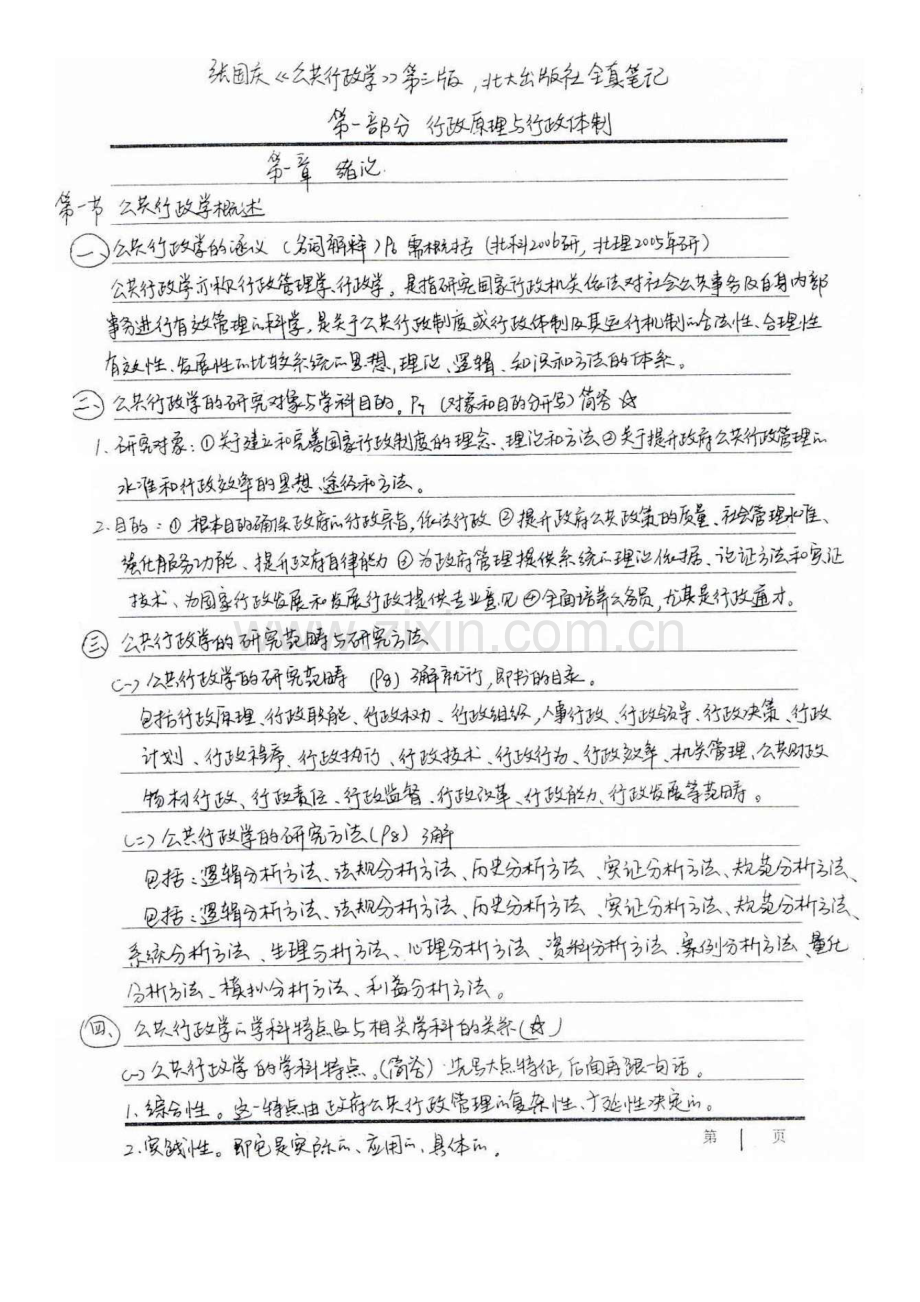 张国庆《公共行政学》第三版，北大出版社全真笔记
第一部分 行政原理与行政体制
第一章 绪论
第一节 公共行政学概述
一、公共行政学的涵义（名词解释）P6 需概括（北科2006研，北理2005年研）
公共行政学亦称行政管理学、行政学。是指研究国家行政机关依法对社会公共事务及自身内部
事务进行有效管理的科学，是关于公共行政制度或行政体制及其运行机制的合法性、合理性
有效性、发展性的比较系统的思想，理论、逻辑、知识和方法的体系。
二、公共行政学的研究对象与学科目的。P7（对象和目的分开写）简答 ☆
1. 研究对象：①关于建立和完善国家行政制度的理念、理论和方法②关于提升政府公共行政管理的
水准和行政效率的思想、途径和方法。
2. 目的：① 根本目的确保政府的行政宗旨，依法行政 ② 提升政府公共政策的质量、社会管理水准、
强化服务功能、提升政府自律能力 ③ 为政府管理提供系统的理论依据、论证方法和实证
技术、为国家行政发展和发展行政提供专业意见 ④ 全面培养公务员，尤其是行政通才。
www.zixin.com.cn
三、公共行政学的研究范畴与研究方法
(一) 公共行政学的研究范畴 （P8）了解就行，即书的目录。
包括行政原理、行政职能、行政权力、行政组织，人事行政、行政领导、行政决策、行政
计划、行政程序、行政执行、行政技术、行政行为、行政效率、机关管理、公共财政
物材行政、行政责任、行政监督、行政改革、行政能力、行政发展等范畴。
(二) 公共行政学的研究方法(P8) 了解
包括：逻辑分析方法、法规分析方法、历史分析方法、实证分析方法、规范分析方法、
包括：逻辑分析方法、法规分析方法、历史分析方法、实证分析方法、规范分析方法、
系统分析方法、生理分析方法、心理分析方法、资料分析方法、案例分析方法、量化
分析方法、模拟分析方法、利益分析方法。
四、公共行政学的学科特点及与相关学科的关系(☆)
(一) 公共行政学的学科特点。(简答) 先写大点特征，后面再跟一句话。
1. 综合性。这一特点由政府公共行政管理的复杂性、广延性决定的。
2. 实践性。即它是实际的、应用的、具体的。
第 1 页